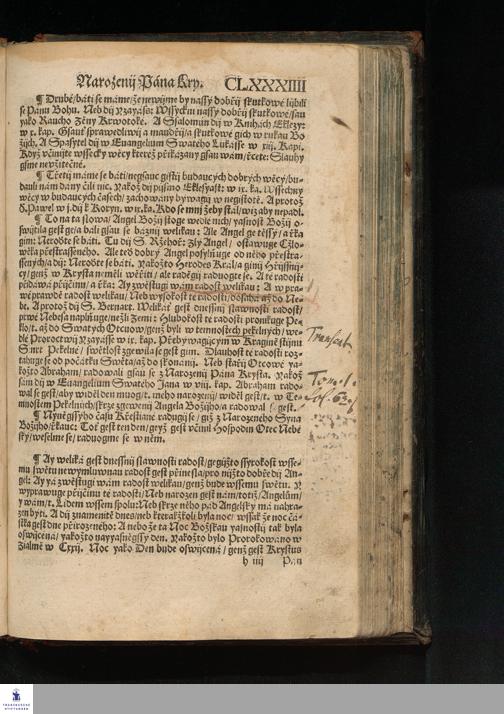 Narozenij Pána Kry. CLXXXIIII
¶ Druhé/báti se máme/že newijme by nassy dobřij skutkowé ljbili
se Pánu Bohu. Neb dij Yzayáss: Wssyckni nassy dobřij skutkowé/sau
yako Raucho Ženy Krwotoké. A Ssalomun dij w Knihách Eklezy:
w ix. kap. Gsauť sprawedliwij a maudřij/a skutkowé gich w rukau Bo
žijch. A Spasytel dij w Euangelium Swatého Lukásse w xvij. Kapi.
Když včinijte wssecky wěcy kteréž přikázany gsau wám/rcete: Sluhy
gsme neužitečné.
¶ Třetij máme se báti/negsauc gistij budaucých dobrých wěcý/bu-
dauli nám dány čili nic. Yakož dij pijsmo Eklesyast: w ix. ka. Wssechny
wěcy w budaucých časech/zachowány bywagij w negistotě. A protož
S. Pawel w j. dij k Koryn. w ix. ka. Kdo se mnj žeby stál/wiz aby nepadl.
¶ To na ta slowa/ Angel Božij stoge wedlé nich/ yasnost Božij o-
swijtila gest ge/a báli gsau se bázni welikau: Ale Angel ge těssy/ a řka
gim: Neroďte se báti. Tu dij S. Řehoř: Zlý Angel/ ostawuge Čžlo-
wěka přestrasseného. Ale też dobrý Angel posylňuge od něho přestra-
ssených/a dij: Neroďte se báti. Yakožto Herodes Král/a ginij Hřijssnij-
cy/ genž w Krysta neměli wěřiti/ ale raděgij raduogte se. A té radosti
přidáwá přijčinu/ a řka: Ay zwěstugi wám radost welikau: A w pra-
wě prawdě radost welikau/ Neb wysokost té radosti/ dosáhá až do Ne-
be. A protož dij S. Bernart. Weliká gest dnessnij slawnosti radost/
prwé Nebesa naplňuge/nežli Zemi: Hlubokost té radosti pronikuge Pe-
klo/ t. až do Swatých Otcuow/genž byli w temnostech pekelných/ we-
dlé Prorotctwij Yzayásse w ix. kap. Přebywagijcým w Kragině stijnu
Smrti Pekelné/ swětlost zgewila se gest gim. Dlauhost té radosti roz-
tahuge se od počátku Swěta/až do skonánij. Neb stařij Otcowé ya-
kožto Abraham/ radowali gsau se z Narozenij Pána Krysta. Yakož
sám dij w Euangelium Swatého Jana w viij. kap. Abraham rado-
wal se gest/aby widěl den muog/ t. mého narozenij/ widěl gest/ t. w Te-
mnostech Pekelných/skrze zgewenij Angela Božijho/a radowal se gest.
¶ Nyněgssyho času Křestiané radugij se/ giž z Narozeného Syna
Božijho/řkauc: Toť gest ten den/ genž gest včinil Hospodin Otec Nebe-
ský/weselme se/ raduogme se w něm.
¶ Ay weliká gest dnessnij slawnosti radost/ gegijžto ssyrokost wsse-
mu swětu newymluwnau radost gest přinesla/pro nijžto dobře dij An-
gel: Ay zá zwěstugi wám radost welikau/ genž bude wssemu swětu. Y
wyprawuge přijčinu té radosti/ Neb narozen gest nám/totiž/ Angelům/
y wám/ t. Lidem wssem spolu: Neb skrze něho pád Angelský má nahra-
zen býti. A dij znamenitě dnes/neb kterakžkoli byla noc/ wssak že noc čá-
ska gest dne přirozeného: A nebo že ta Noc Božskau yasnostij tak byla
oswijcena/ yakožto nayyasněgssy den. Yakožto bylo Prorokowáno w
Žialmě w Cxxij. Noc yako Den bude oswijcena/ genž gest Krystus
h iiij Pán
Transeat